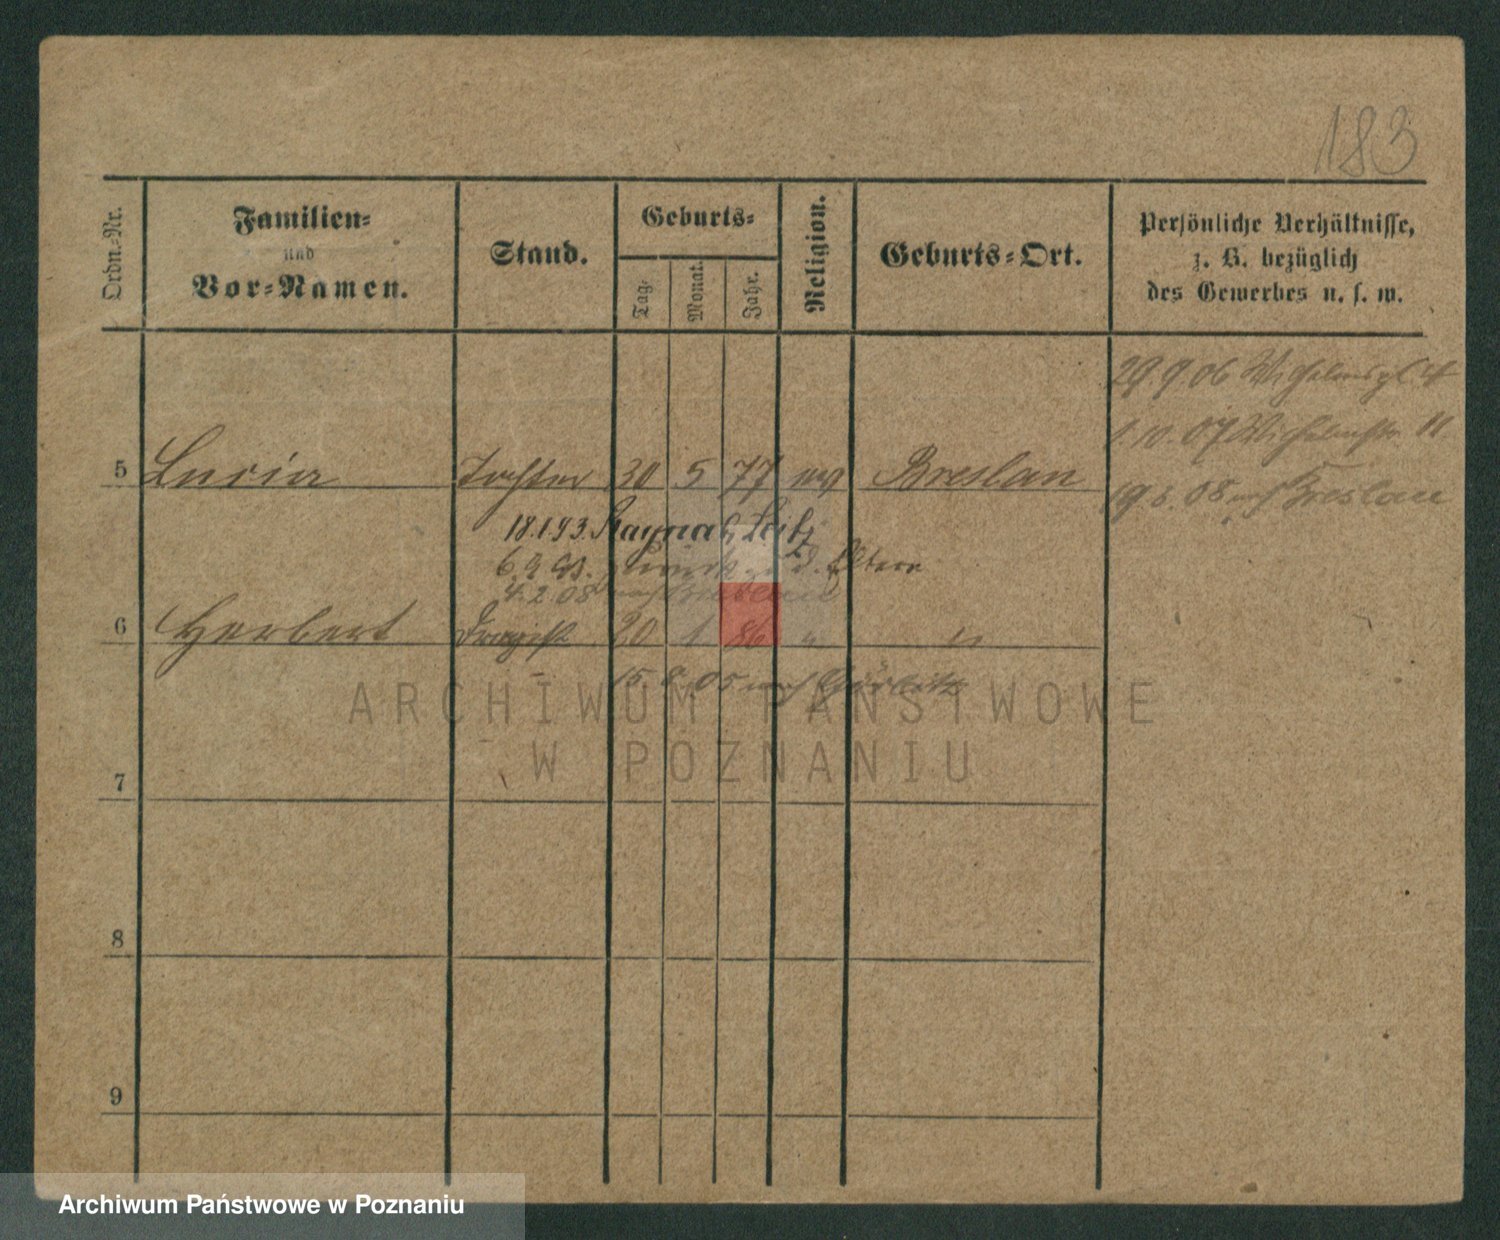 183
Ordn.-Nr.
Familien-
und
Vor-Namen.
Stand.
Geburts-
Tag.
Monat.
Jahr.
Religion.
Geburts-Ort.
Persönliche Verhältnisse,
z. B. bezüglich
des Gewerbes u. s. w.
29.9.06 Wilhelmspl. 4
1.10.07 Wilhelmstr. 11.
5 Lucia Tochter 30 5 77 ev Breslau
19.6.08 nach Breslau
18.1.93.
6.9.93. zurück z. d. Eltern
4.2.08 nach
6 Herbert Drogist 20 1 86 " "
15.9.05 nach Görlitz
ARCHIWUM PAŃSTWOWE
W POZNANIU
7
8
9
Archiwum Państwowe w Poznaniu